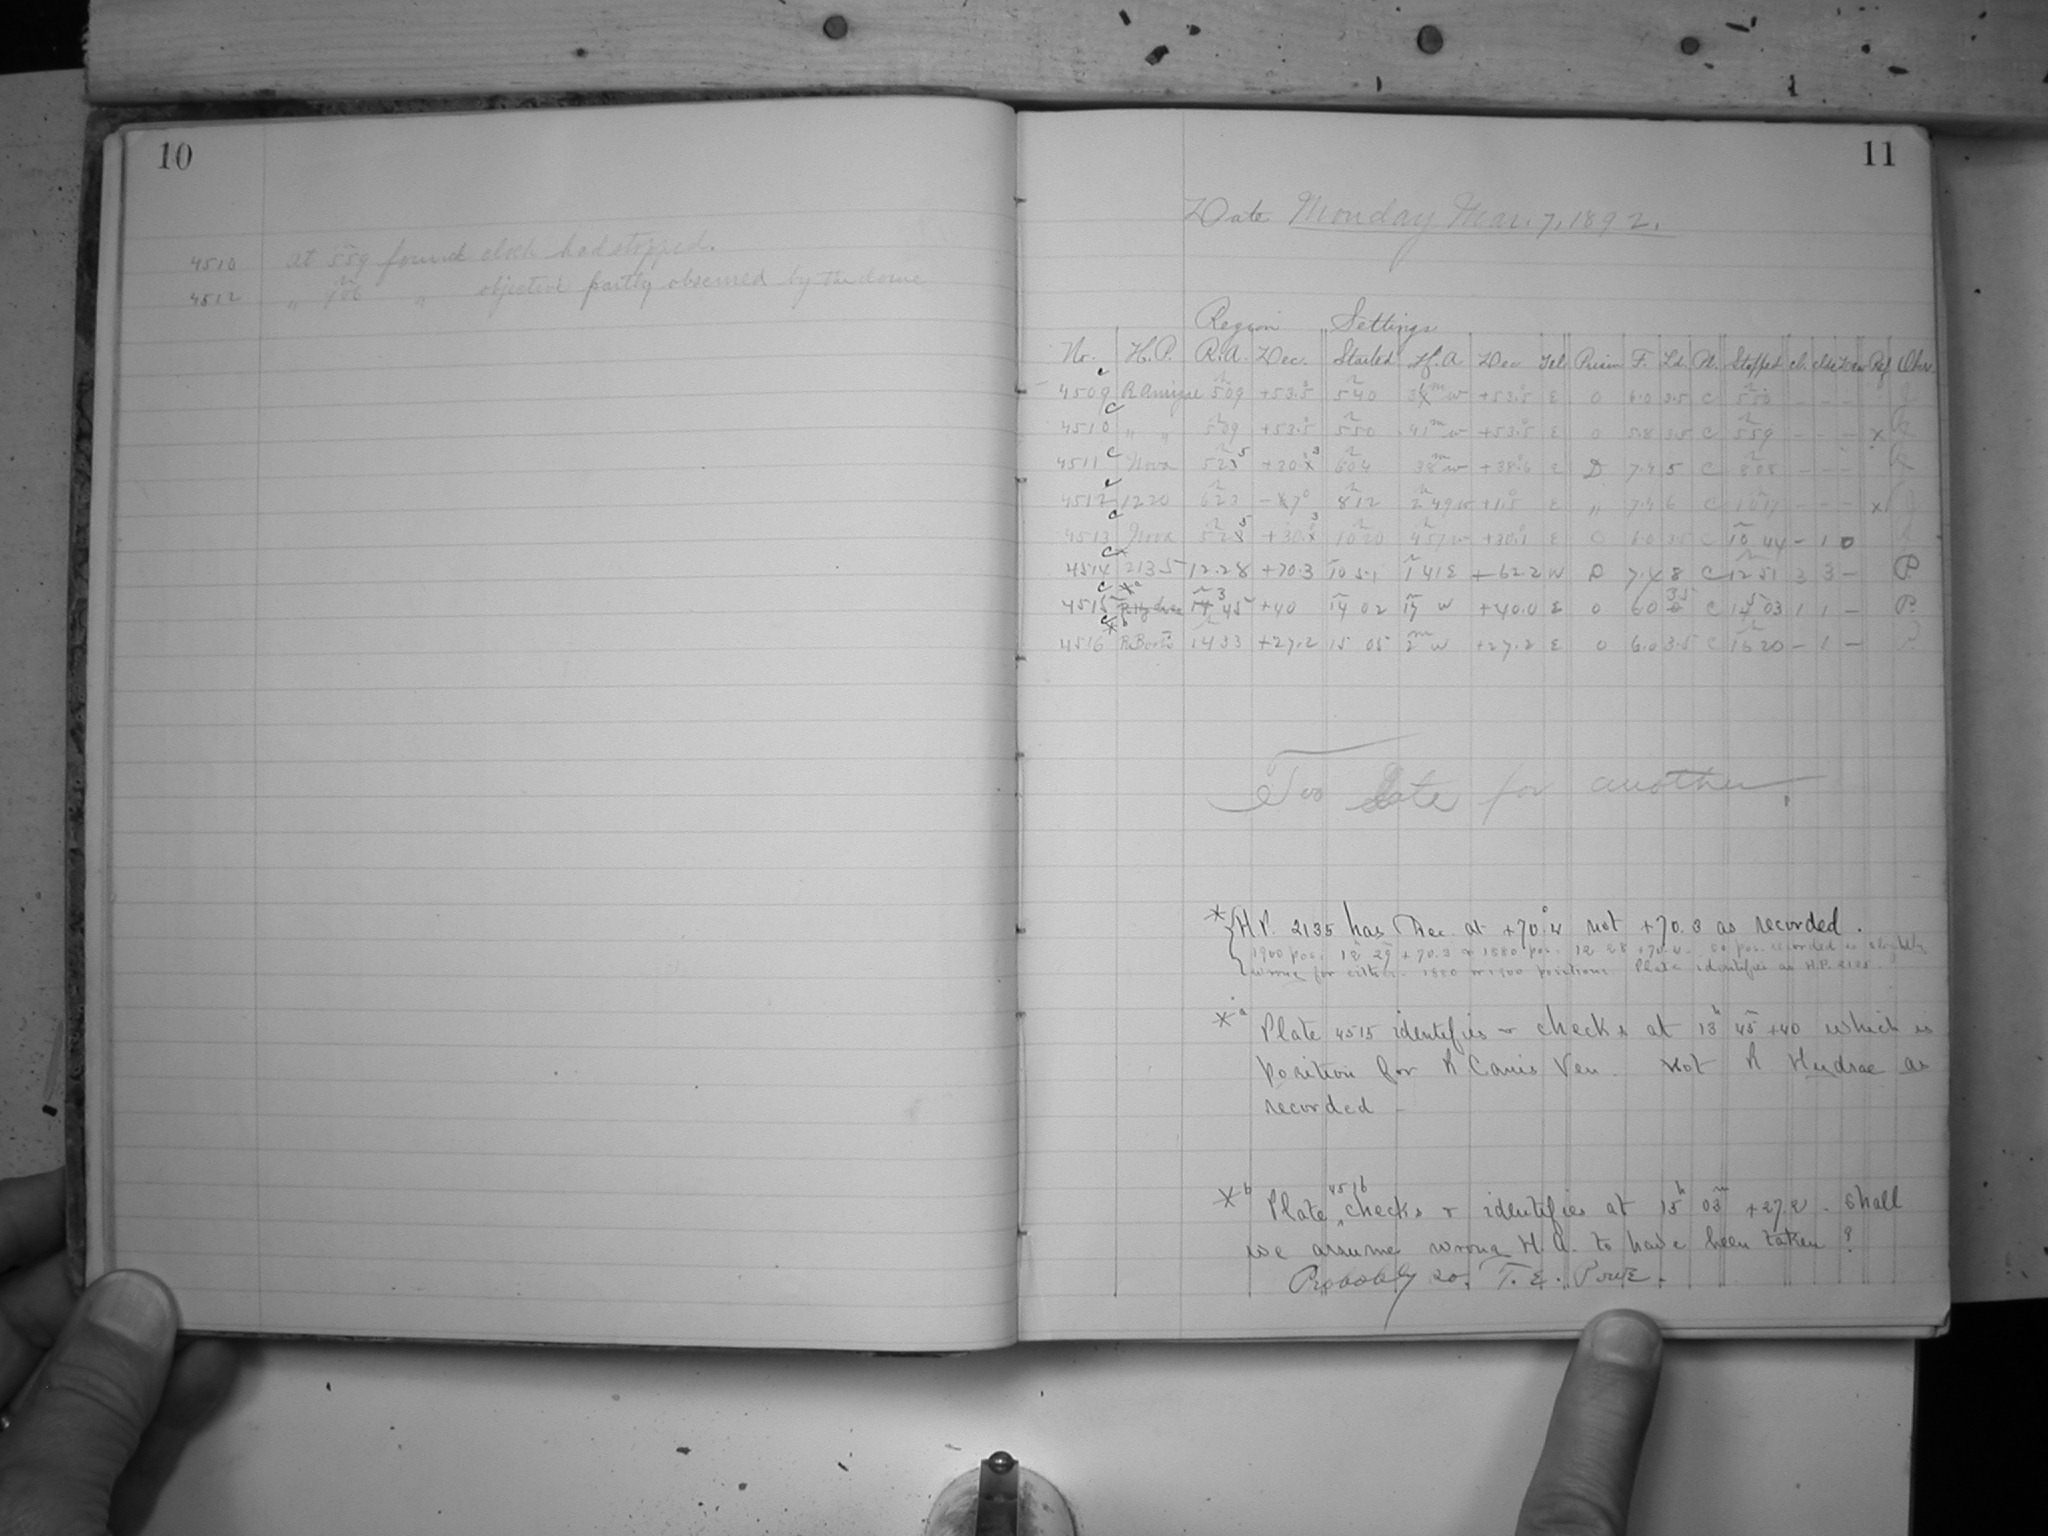 10
4510 at 5 59 found clock had stopped.
4512 " " objective partly obscured by the dome
11
Date Monday Mar. 7, 1892.
Region Settings
No. H.P. R.A. Dec. Started H.A Dec Tel Prism F. Ld. Pl. Stopped Cl. Obsr.
4509 R Aurigae 5 09 +53.5 5 40 w +53.5 E 0 6.0 3.5 C 5 50 - - -
4510 " " 5 09 +53.5 5 50 41 m w +53.5 E 0 5.8 3.5 C 5 59 - - - x
4511 Nova 6 04 38 m w E D 7.4 5 C 8 08 - - -
4512 1220 6 22 8 12 2 49 w E " 7.4 6 C 10 17 - - - x
4513 Nova 10 20 4 51 w +30.1 E 0 6.0 3.5 C 10 44 - 1 0
4514 2135 12.28 +70.3 10 51 1 41 E +62.2 W D 7.4 8 C 12 51 3 3 - P.
4515 R Hydrae 13 45 +40 14 02 17 w +40.0 E 0 6.0 3.5 C 14 03 1 1 - P.
4516 R Bootis 14 33 +27.2 15 05 2 m w +27.2 E 0 6.0 3.5 C 15 20 - 1 - P.
Too Late for another.
* H.P. 2135 has Dec. at +70.°4 not +70.3 as recorded.
1900 pos. 12 29 +70.3 & 1880 pos. 12 28 +70.4. So pos. recorded is slightly
wrong for either 1880 or 1900 positions. Plate identifies as H.P. 2135
*a Plate 4515 identifies & checks at 13h 45m +40 which is
position for R Canis Ven. not R Hydrae as
recorded -
*b Plate 4516 checks & identifies at 15h 03m +27.2. Shall
we assume wrong H.A. to have been taken?
Probably so. T. E. P